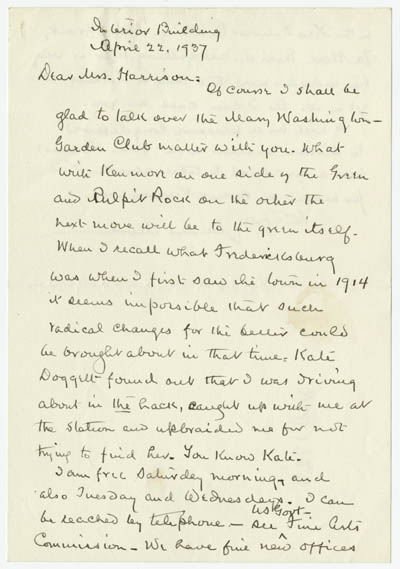 Interior Building
April 22, 1937
Dear Mrs. Harrison:
Of course I shall be
glad to talk over the Mary Washington-
Garden Club matter with you. What
with Kenmore on one side of the Green
and Pulpit Rock on the other the
next move will be to the green itself.
When I recall what Fredericksburg
was when I first saw the town in 1914
it seems impossible that such
radical changes for the better could
be brought about in that time. Kate
Doggett found out that I was driving
about in the hack, caught up with me at
the station and upbraided me for not
trying to find her. You know Kate.
I am free Saturday morning, and
also Tuesday and Wednesdays. I can
be reached by telephone - see US Govt - Fine Arts
Commission - We have fine new offices